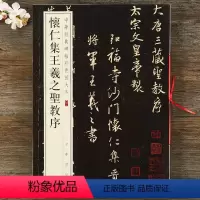 大唐三藏聖教序
太宗文皇帝製
弘福寺沙門懷仁集晉
將軍王羲之書
懷仁集王羲之聖教序
粉象优品